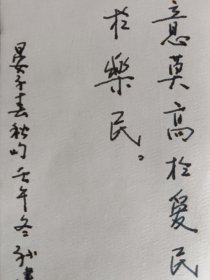 意莫高於愛民
於樂民。
晏子春秋句壬午冬孙